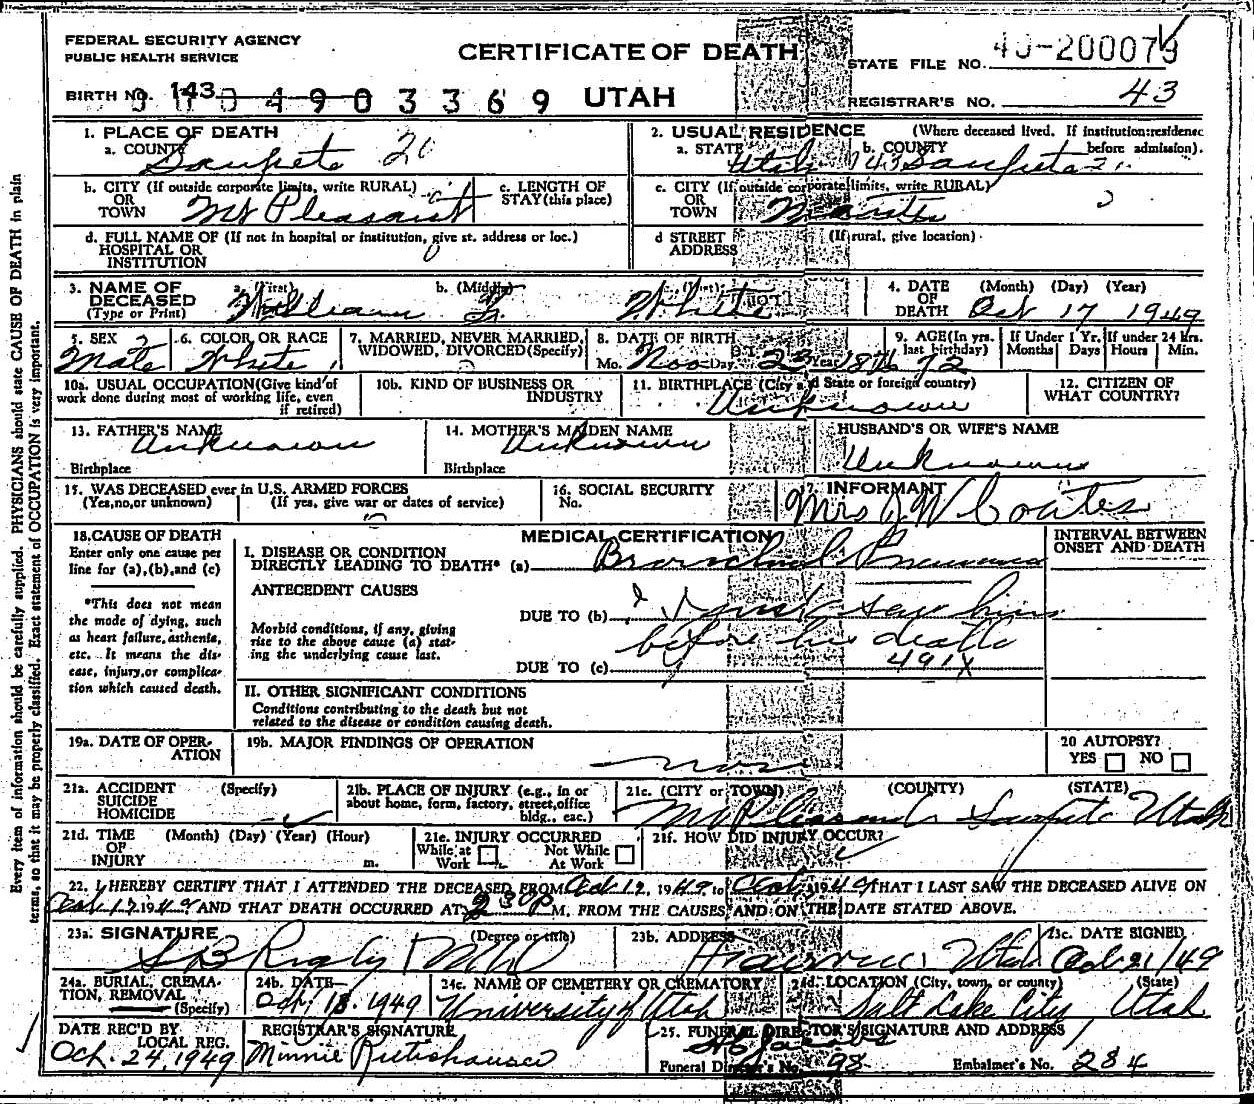 FEDERAL SECURITY AGENCY
PUBLIC HEALTH SERVICE
CERTIFICATE OF DEATH
STATE FILE NO. 49-200079
BIRTH NO. 143 0490 3369 UTAH
REGISTRAR'S NO. 43
1. PLACE OF DEATH
a. COUNTY Sanpete 20
b. CITY (If outside corporate limits, write RURAL) OR TOWN Mt Pleasant
c. LENGTH OF STAY (this place)
d. FULL NAME OF (If not in hospital or institution, give st. address or loc.) HOSPITAL OR INSTITUTION
2. USUAL RESIDENCE (Where deceased lived. If institution: residence before admission).
a. STATE Utah 143 b. COUNTY Sanpete
c. CITY (If outside corporate limits, write RURAL) OR TOWN
d STREET ADDRESS (If rural, give location)
3. NAME OF DECEASED (Type or Print)
a. (First) William b. (Middle) White
4. DATE OF DEATH (Month) (Day) (Year) Oct 17 1949
5. SEX Male
6. COLOR OR RACE White
7. MARRIED, NEVER MARRIED, WIDOWED, DIVORCED (Specify)
8. DATE OF BIRTH
Mo. Nov Day 23 Year 1876
9. AGE (In yrs. last birthday) 72
If Under 1 Yr. Months Days
If under 24 Hrs. Hours Min.
10a. USUAL OCCUPATION (Give kind of work done during most of working life, even if retired)
10b. KIND OF BUSINESS OR INDUSTRY
11. BIRTHPLACE (City and State or foreign country) Unknown
12. CITIZEN OF WHAT COUNTRY?
13. FATHER'S NAME Unknown
Birthplace
14. MOTHER'S MAIDEN NAME Unknown
Birthplace
HUSBAND'S OR WIFE'S NAME
Unknown
15. WAS DECEASED ever in U.S. ARMED FORCES
(Yes, no, or unknown) (If yes, give war or dates of service)
16. SOCIAL SECURITY No.
17. INFORMANT
Mrs J W Coates
18. CAUSE OF DEATH
Enter only one cause per line for (a), (b), and (c)
*This does not mean the mode of dying, such as heart failure, asthenia, etc. It means the disease, injury, or complication which caused death.
MEDICAL CERTIFICATION
INTERVAL BETWEEN ONSET AND DEATH
I. DISEASE OR CONDITION DIRECTLY LEADING TO DEATH* (a) Bronchial Pneumonia
ANTECEDENT CAUSES
Morbid conditions, if any, giving rise to the above cause (a) stating the underlying cause last.
DUE TO (b) I just saw him
before his death
DUE TO (c) 491X
II. OTHER SIGNIFICANT CONDITIONS
Conditions contributing to the death but not related to the disease or condition causing death.
19a. DATE OF OPERATION
19b. MAJOR FINDINGS OF OPERATION
20 AUTOPSY?
YES NO
21a. ACCIDENT SUICIDE HOMICIDE (Specify)
21b. PLACE OF INJURY (e.g., in or about home, form, factory, street, office bldg., eac.)
21c. (CITY or TOWN) (COUNTY) (STATE)
Mt Pleasant Sanpete Utah
21d. TIME OF INJURY (Month) (Day) (Year) (Hour) m.
21e. INJURY OCCURRED
While at Work Not While At Work
21f. HOW DID INJURY OCCUR?
22. I HEREBY CERTIFY THAT I ATTENDED THE DECEASED FROM Oct 12, 1949 to Oct 1949 THAT I LAST SAW THE DECEASED ALIVE ON
Oct 17 1949 AND THAT DEATH OCCURRED AT 2 30 P M. FROM THE CAUSES AND ON THE DATE STATED ABOVE.
23a. SIGNATURE (Degree or title)
S B Rigby MD
23b. ADDRESS
Fairview Utah
23c. DATE SIGNED
Oct 21/49
24a. BURIAL, CREMATION, REMOVAL (Specify)
24b. DATE
Oct. 18. 1949
24c. NAME OF CEMETERY OR CREMATORY
University of Utah
24d. LOCATION (City, town, or county) (State)
Salt Lake City Utah
DATE REC'D BY LOCAL REG.
Oct. 24. 1949
REGISTRAR'S SIGNATURE
Minnie Rutishauser
25. FUNERAL DIRECTOR'S SIGNATURE AND ADDRESS
Jacobs
Funeral Director's No. 98 Embalmer's No. 284
Every item of information should be carefully supplied. PHYSICIANS should state CAUSE OF DEATH in plain
terms, so that it may be properly classified. Exact statement of OCCUPATION is very important.